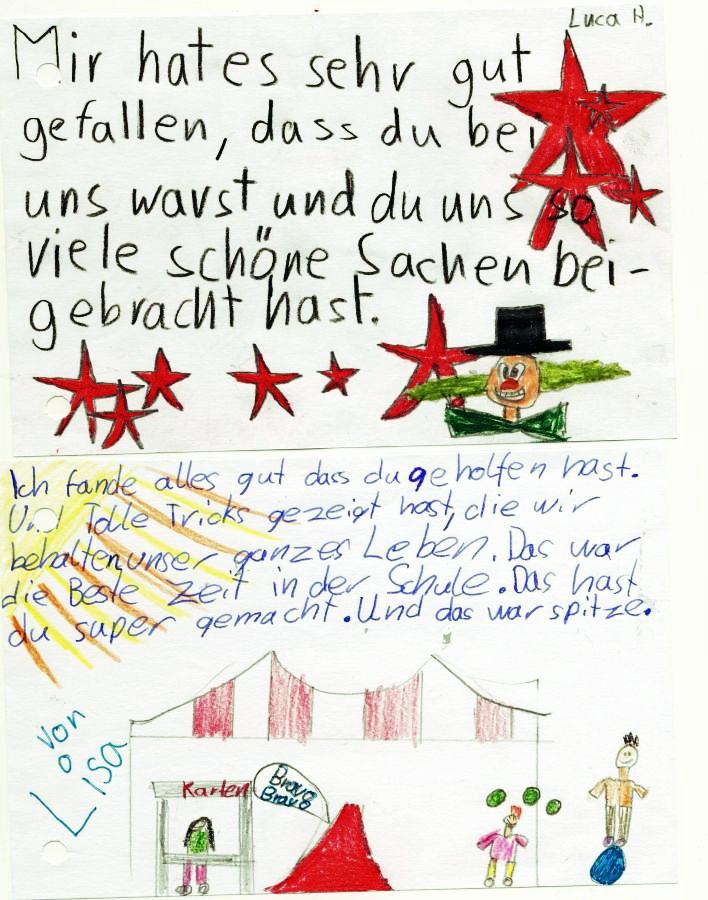 Luca H.
Mir hat es sehr gut
gefallen, dass du bei
uns warst und du uns so
viele schöne Sachen bei-
gebracht hast.
Ich fande alles gut dass du geholfen hast.
Und Tolle Tricks gezeigt hast, die wir
behalten unser ganzes Leben. Das war
die Beste Zeit in der Schule. Das hast
du super gemacht. Und das war spitze.
von
Lisa
Karten
Bravo
Bravo